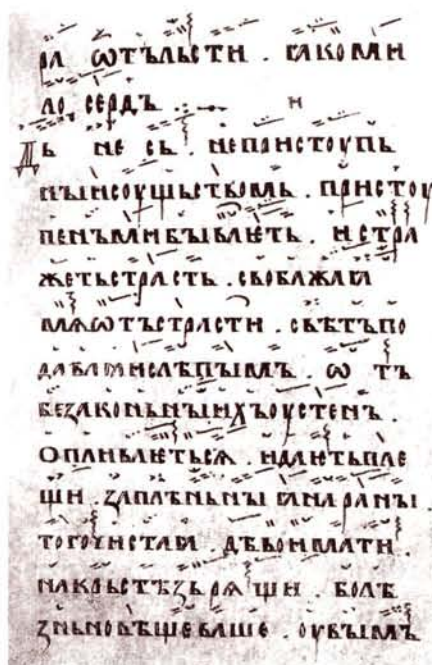 ра ѡтъльсти . ꙗкоми
ло сердъ . н
Дь не сь . непристоупь
ныисоущьствомь . пристоу
пенъмибываѥть . истра
жетьстрасть . свобажаꙗ
мѧѡтъстрасти . свѣтъпо
даваꙗислѣпымъ . ѡ тъ
беꙁаконьныихъоустенъ .
опливаѥтьсѧ . идаѥтьпле
щи . ꙁаплѣньныꙗнараны .
тогочистаꙗ . дѣвоимати .
накрьстѣꙁьрѧщи . болѣ
ꙁньновѣщеваше . оувымъ